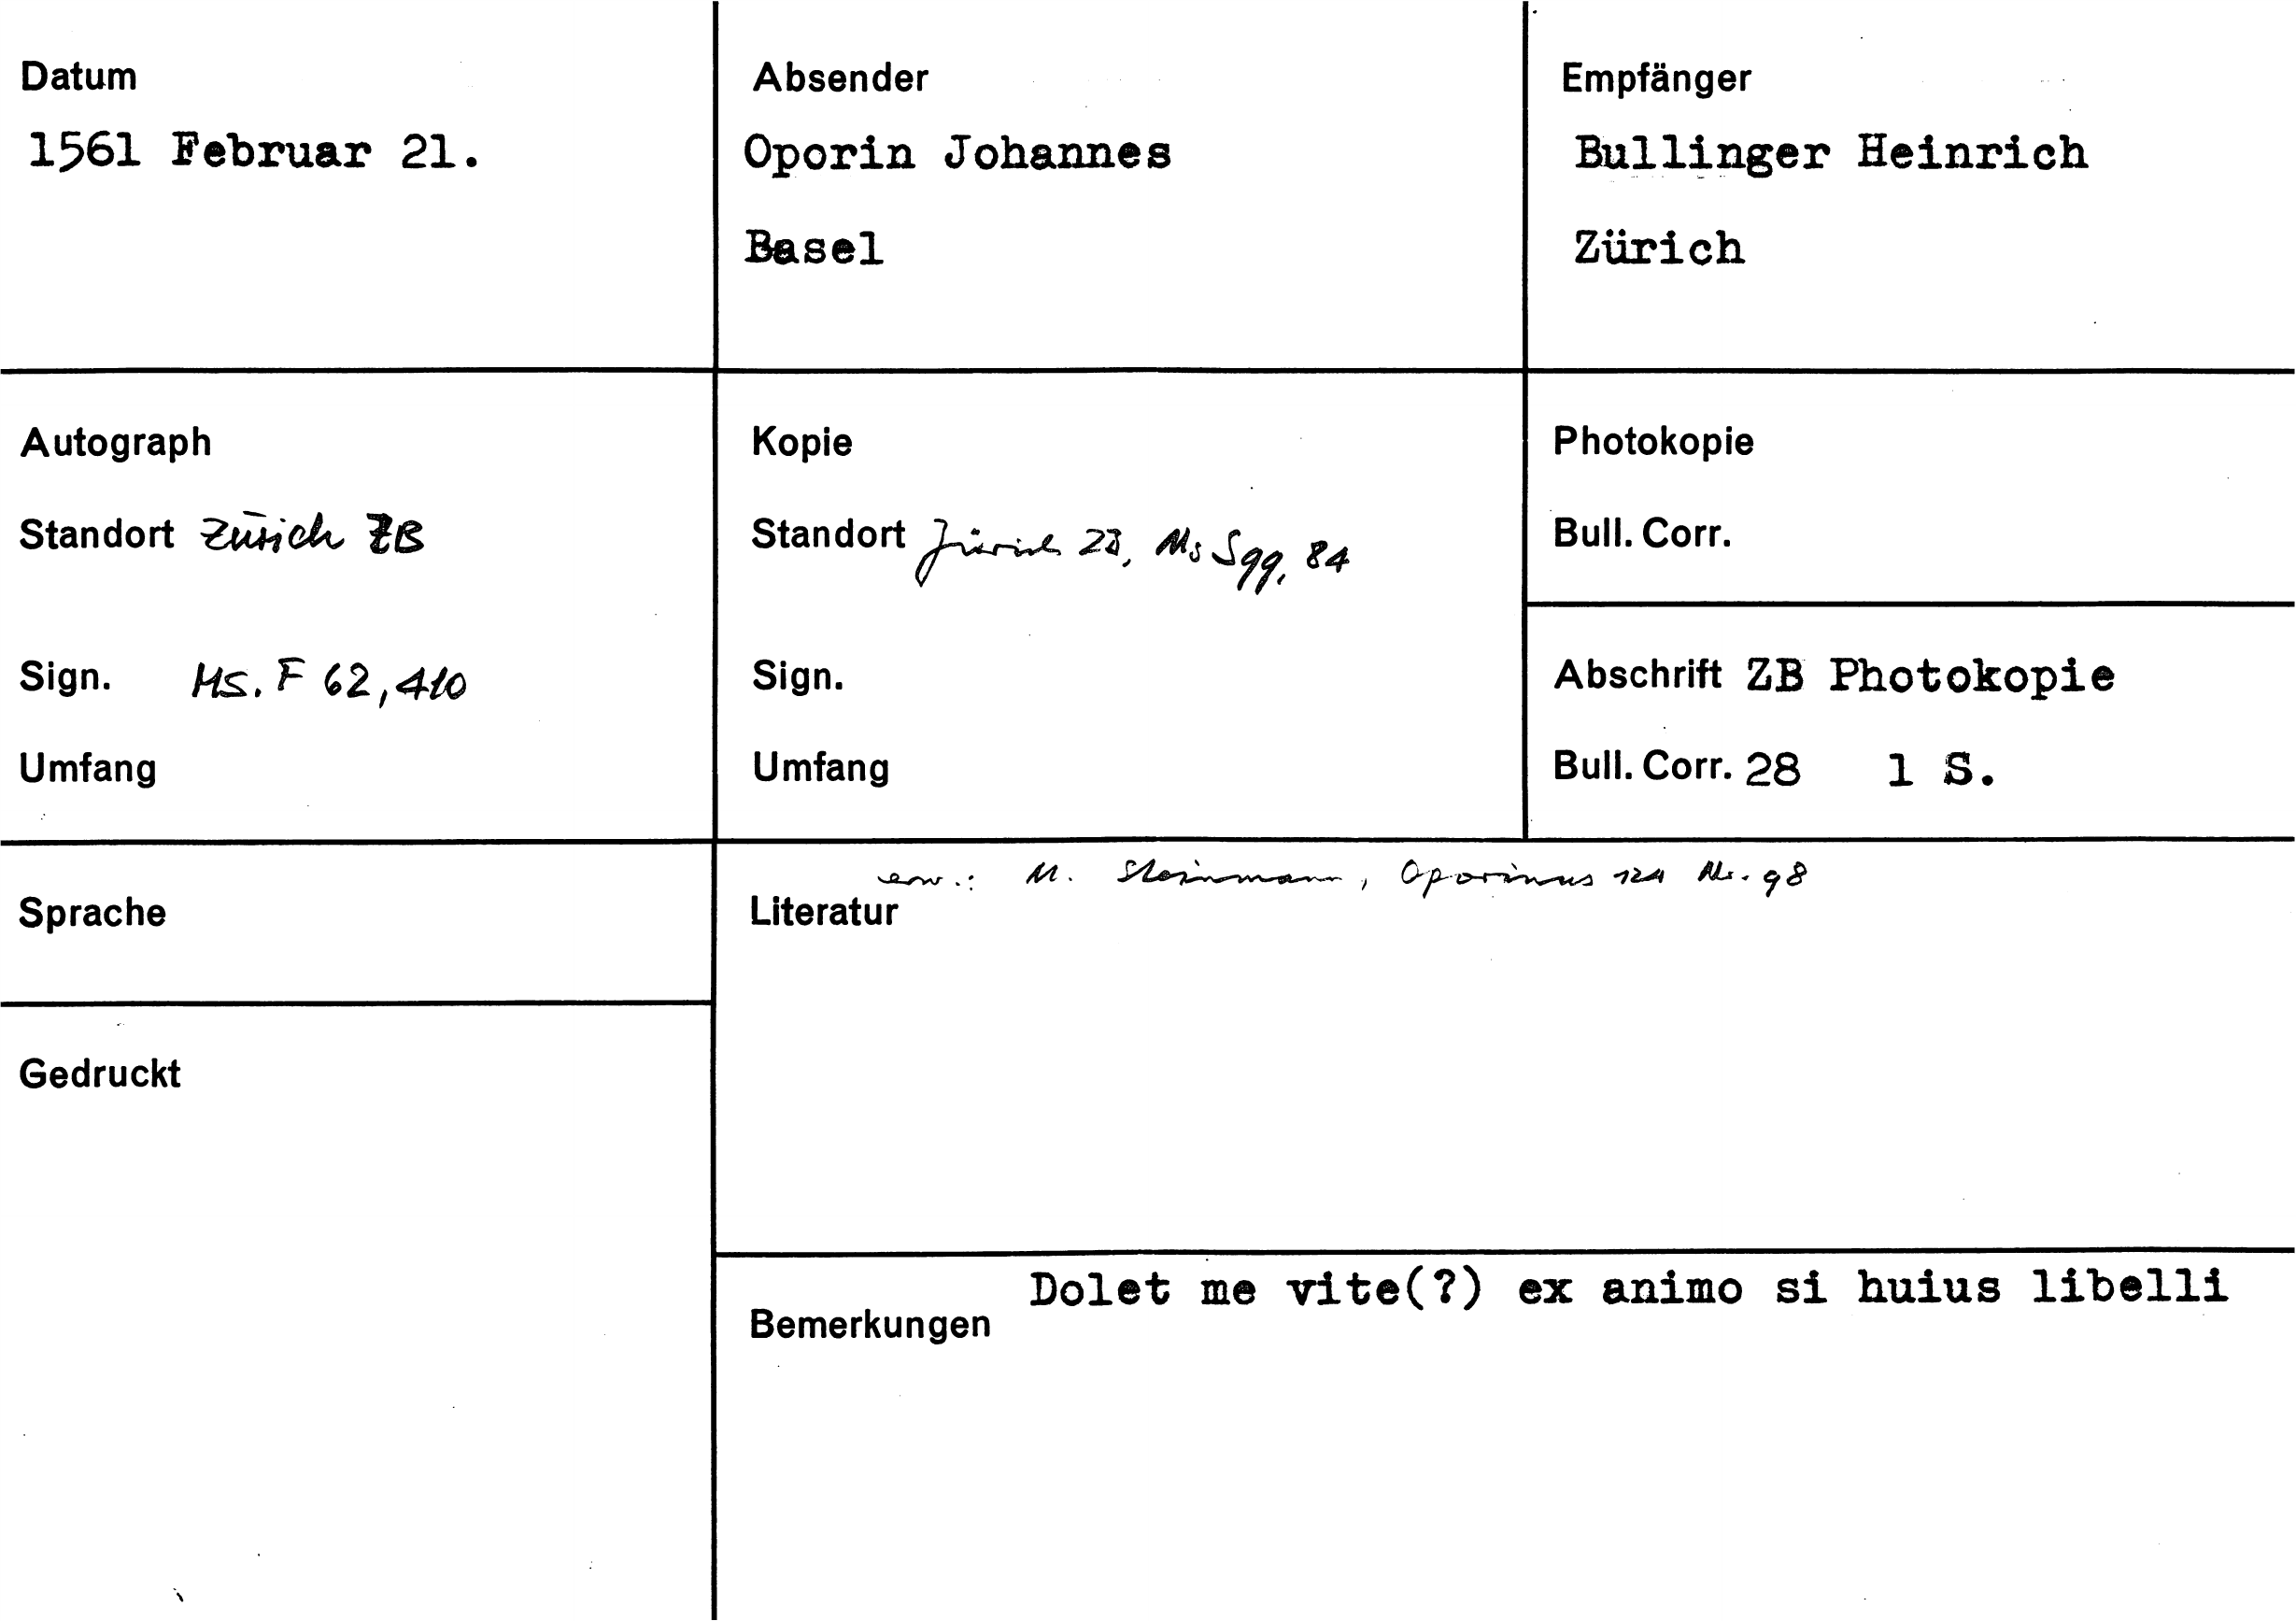 Datum
1561 Februar 21.
Absender
Oporin Johannes
Basel
Empfänger
Bullinger Heinrich
Zürich
Autograph
Standort Zürich ZB
Sign. Ms. F 62, 410
Umfang
Kopie
Standort Zürich ZB, Ms S 99, 84
Sign.
Umfang
Photokopie
Bull. Corr.
Abschrift ZB Photokopie
Bull. Corr. 28 1 S.
Sprache
Gedruckt
erw.: M. Steinmann, Oporinus 124 Nr. 98
Literatur
Dolet me vite(?) ex animo si huius libelli
Bemerkungen